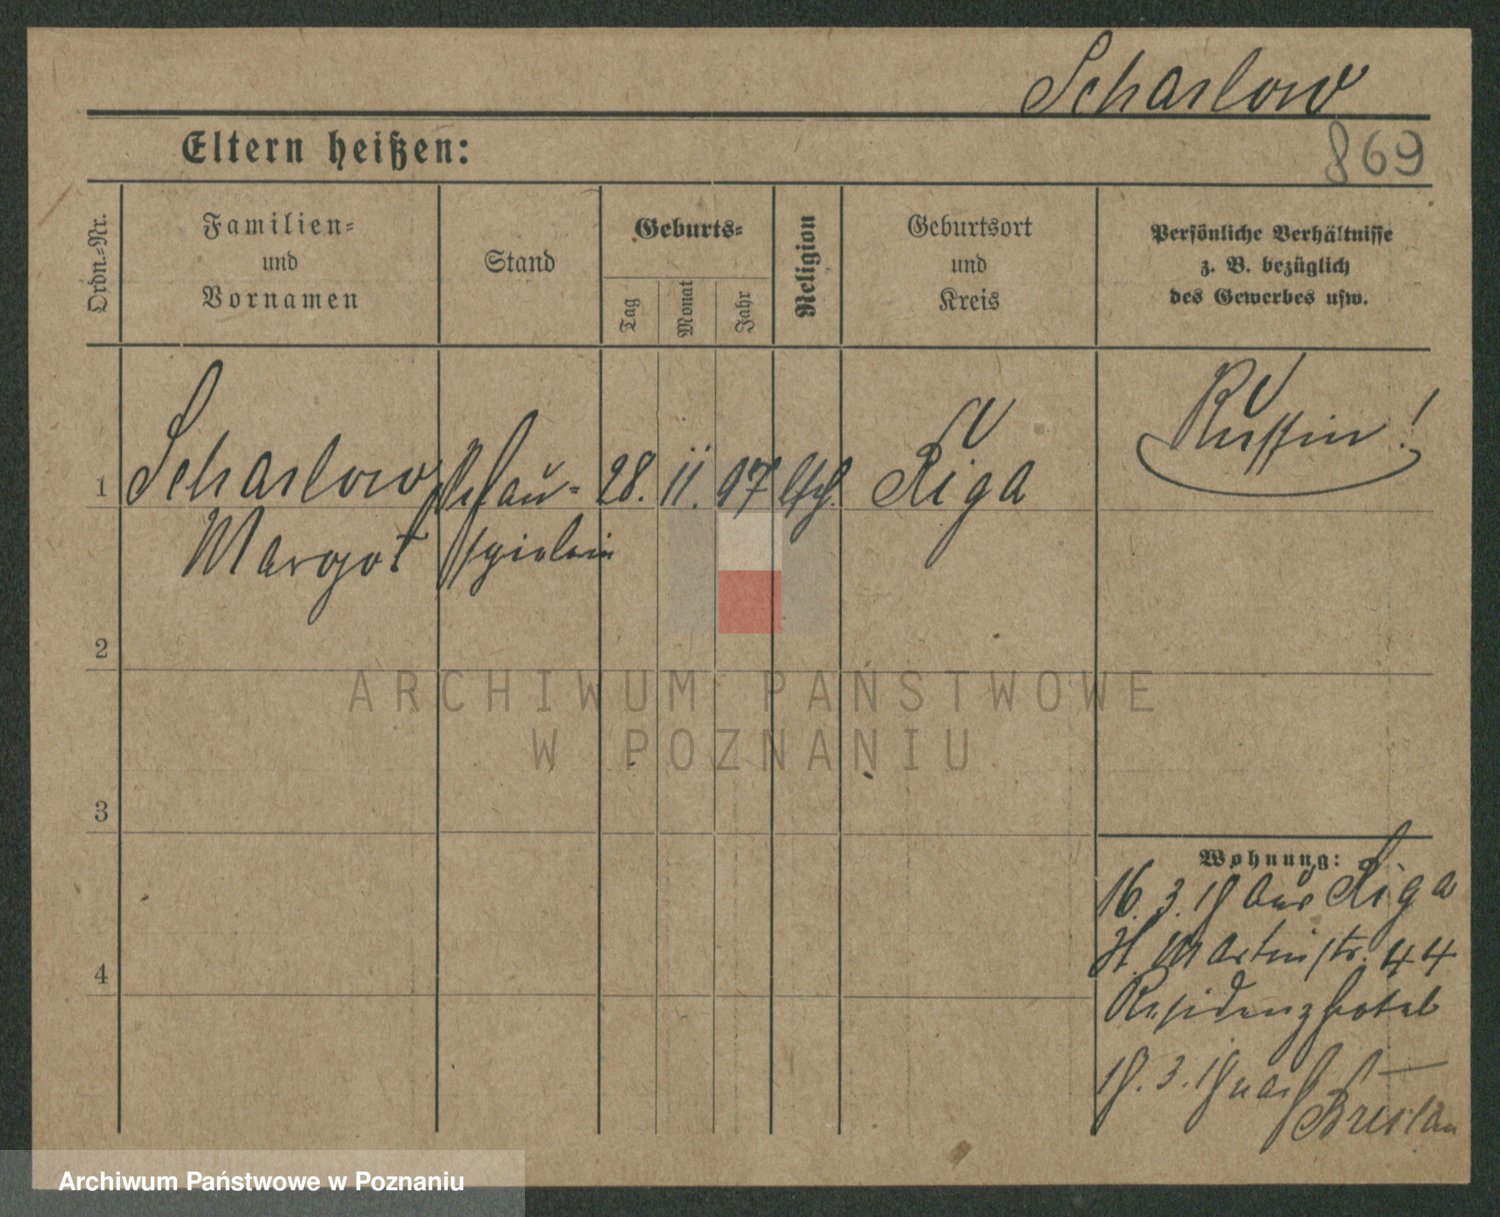 Scharlow
Eltern heißen:
869
Ordn.-Nr.
Familien-
und
Vornamen
Stand
Geburts-
Tag
Monat
Jahr
Religion
Geburtsort
und
Kreis
Persönliche Verhältnisse
z. B. bezüglich
des Gewerbes usw.
1
Scharlow
Margot
Schau-
spielerin
28.
11.
97
Riga
Russin!
2
3
4
ARCHIWUM PAŃSTWOWE
W POZNANIU
Wohnung:
16. 3. 18 aus Riga
St. Martinstr. 44
Residenzhotel
18. 3. 18 nach
Breslau
Archiwum Państwowe w Poznaniu